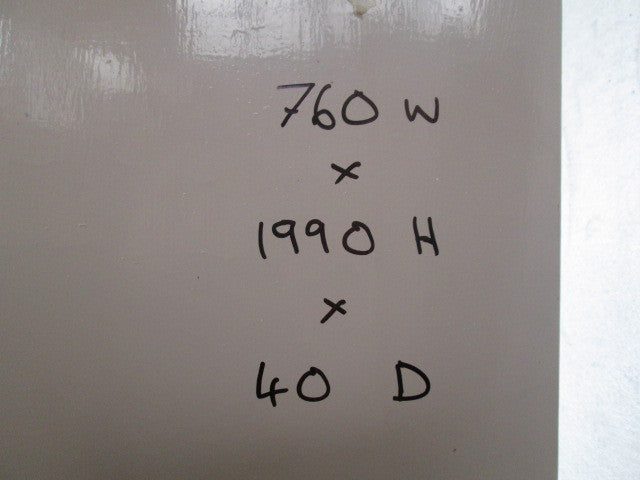 760 W
x
1990 H
x
40 D